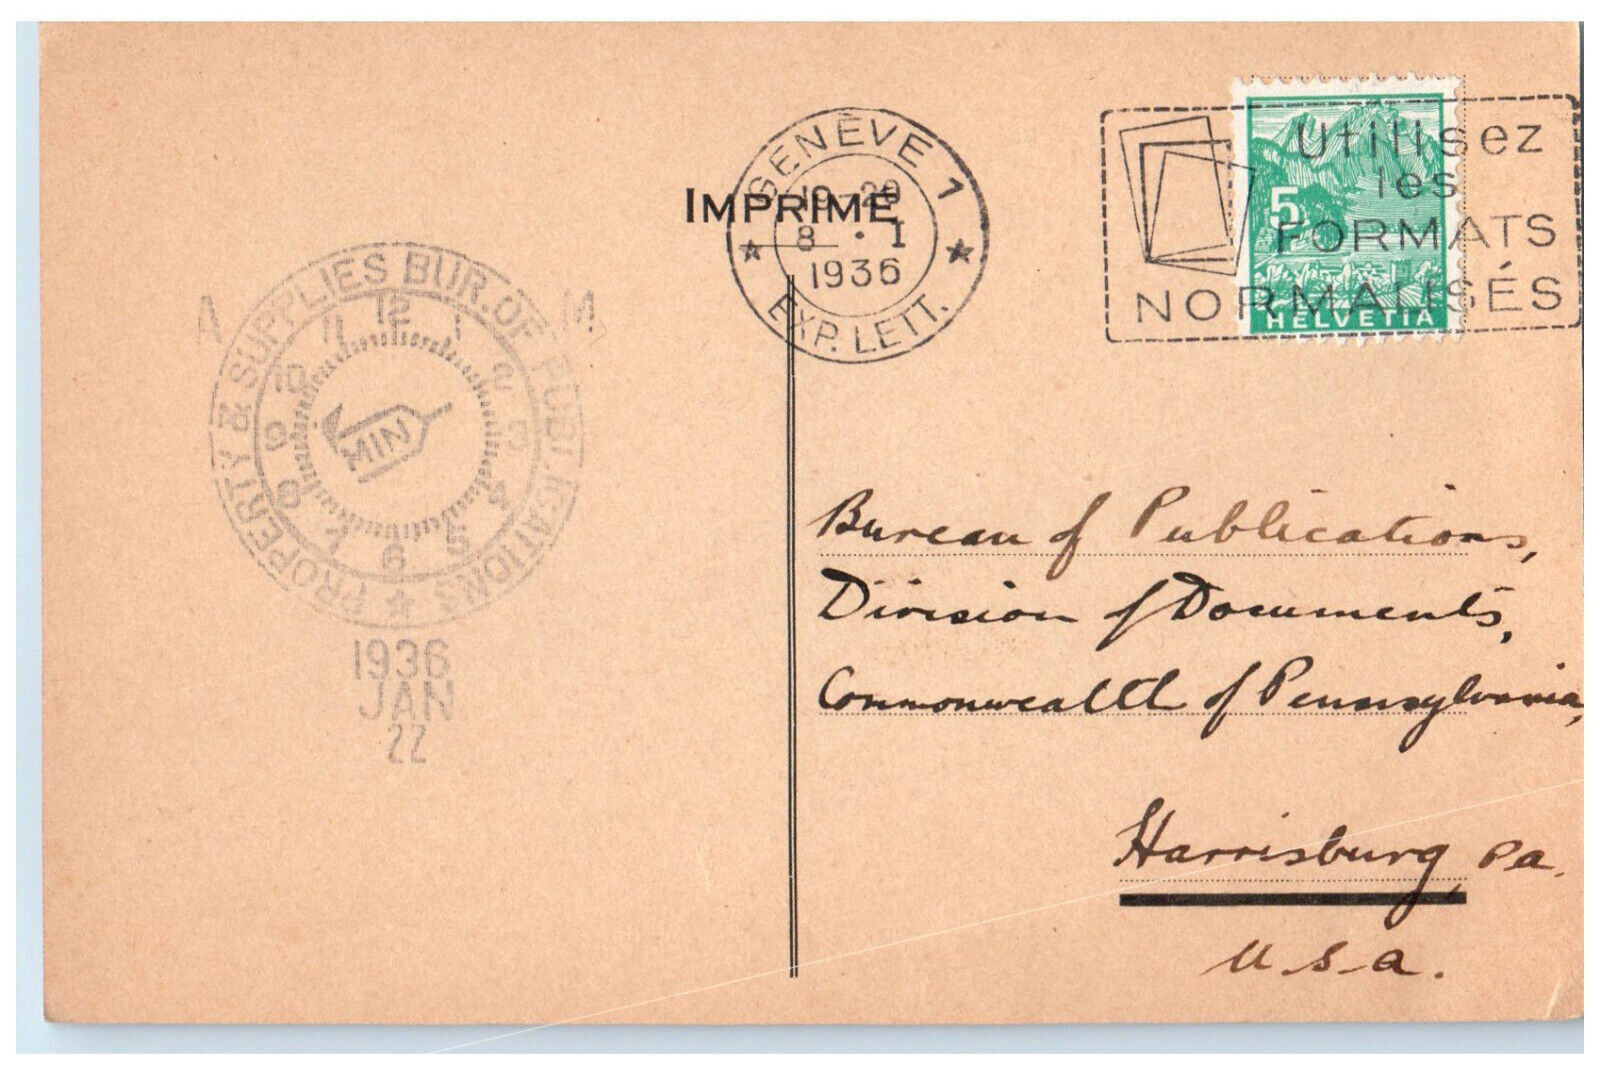 IMPRIMÉ
GENÈVE 1
8 · I
1936
EXP. LETT.
Utilisez
les
FORMATS
NORMALISÉS
5
HELVETIA
A M
PROPERTY & SUPPLIES BUR. OF PUBLICATIONS
12
1
2
3
4
5
6
7
8
9
10
11
MIN
1936
JAN
22
Bureau of Publications,
Division of Documents,
Commonwealth of Pennsylvania,
Harrisburg, Pa.
U.S.A.